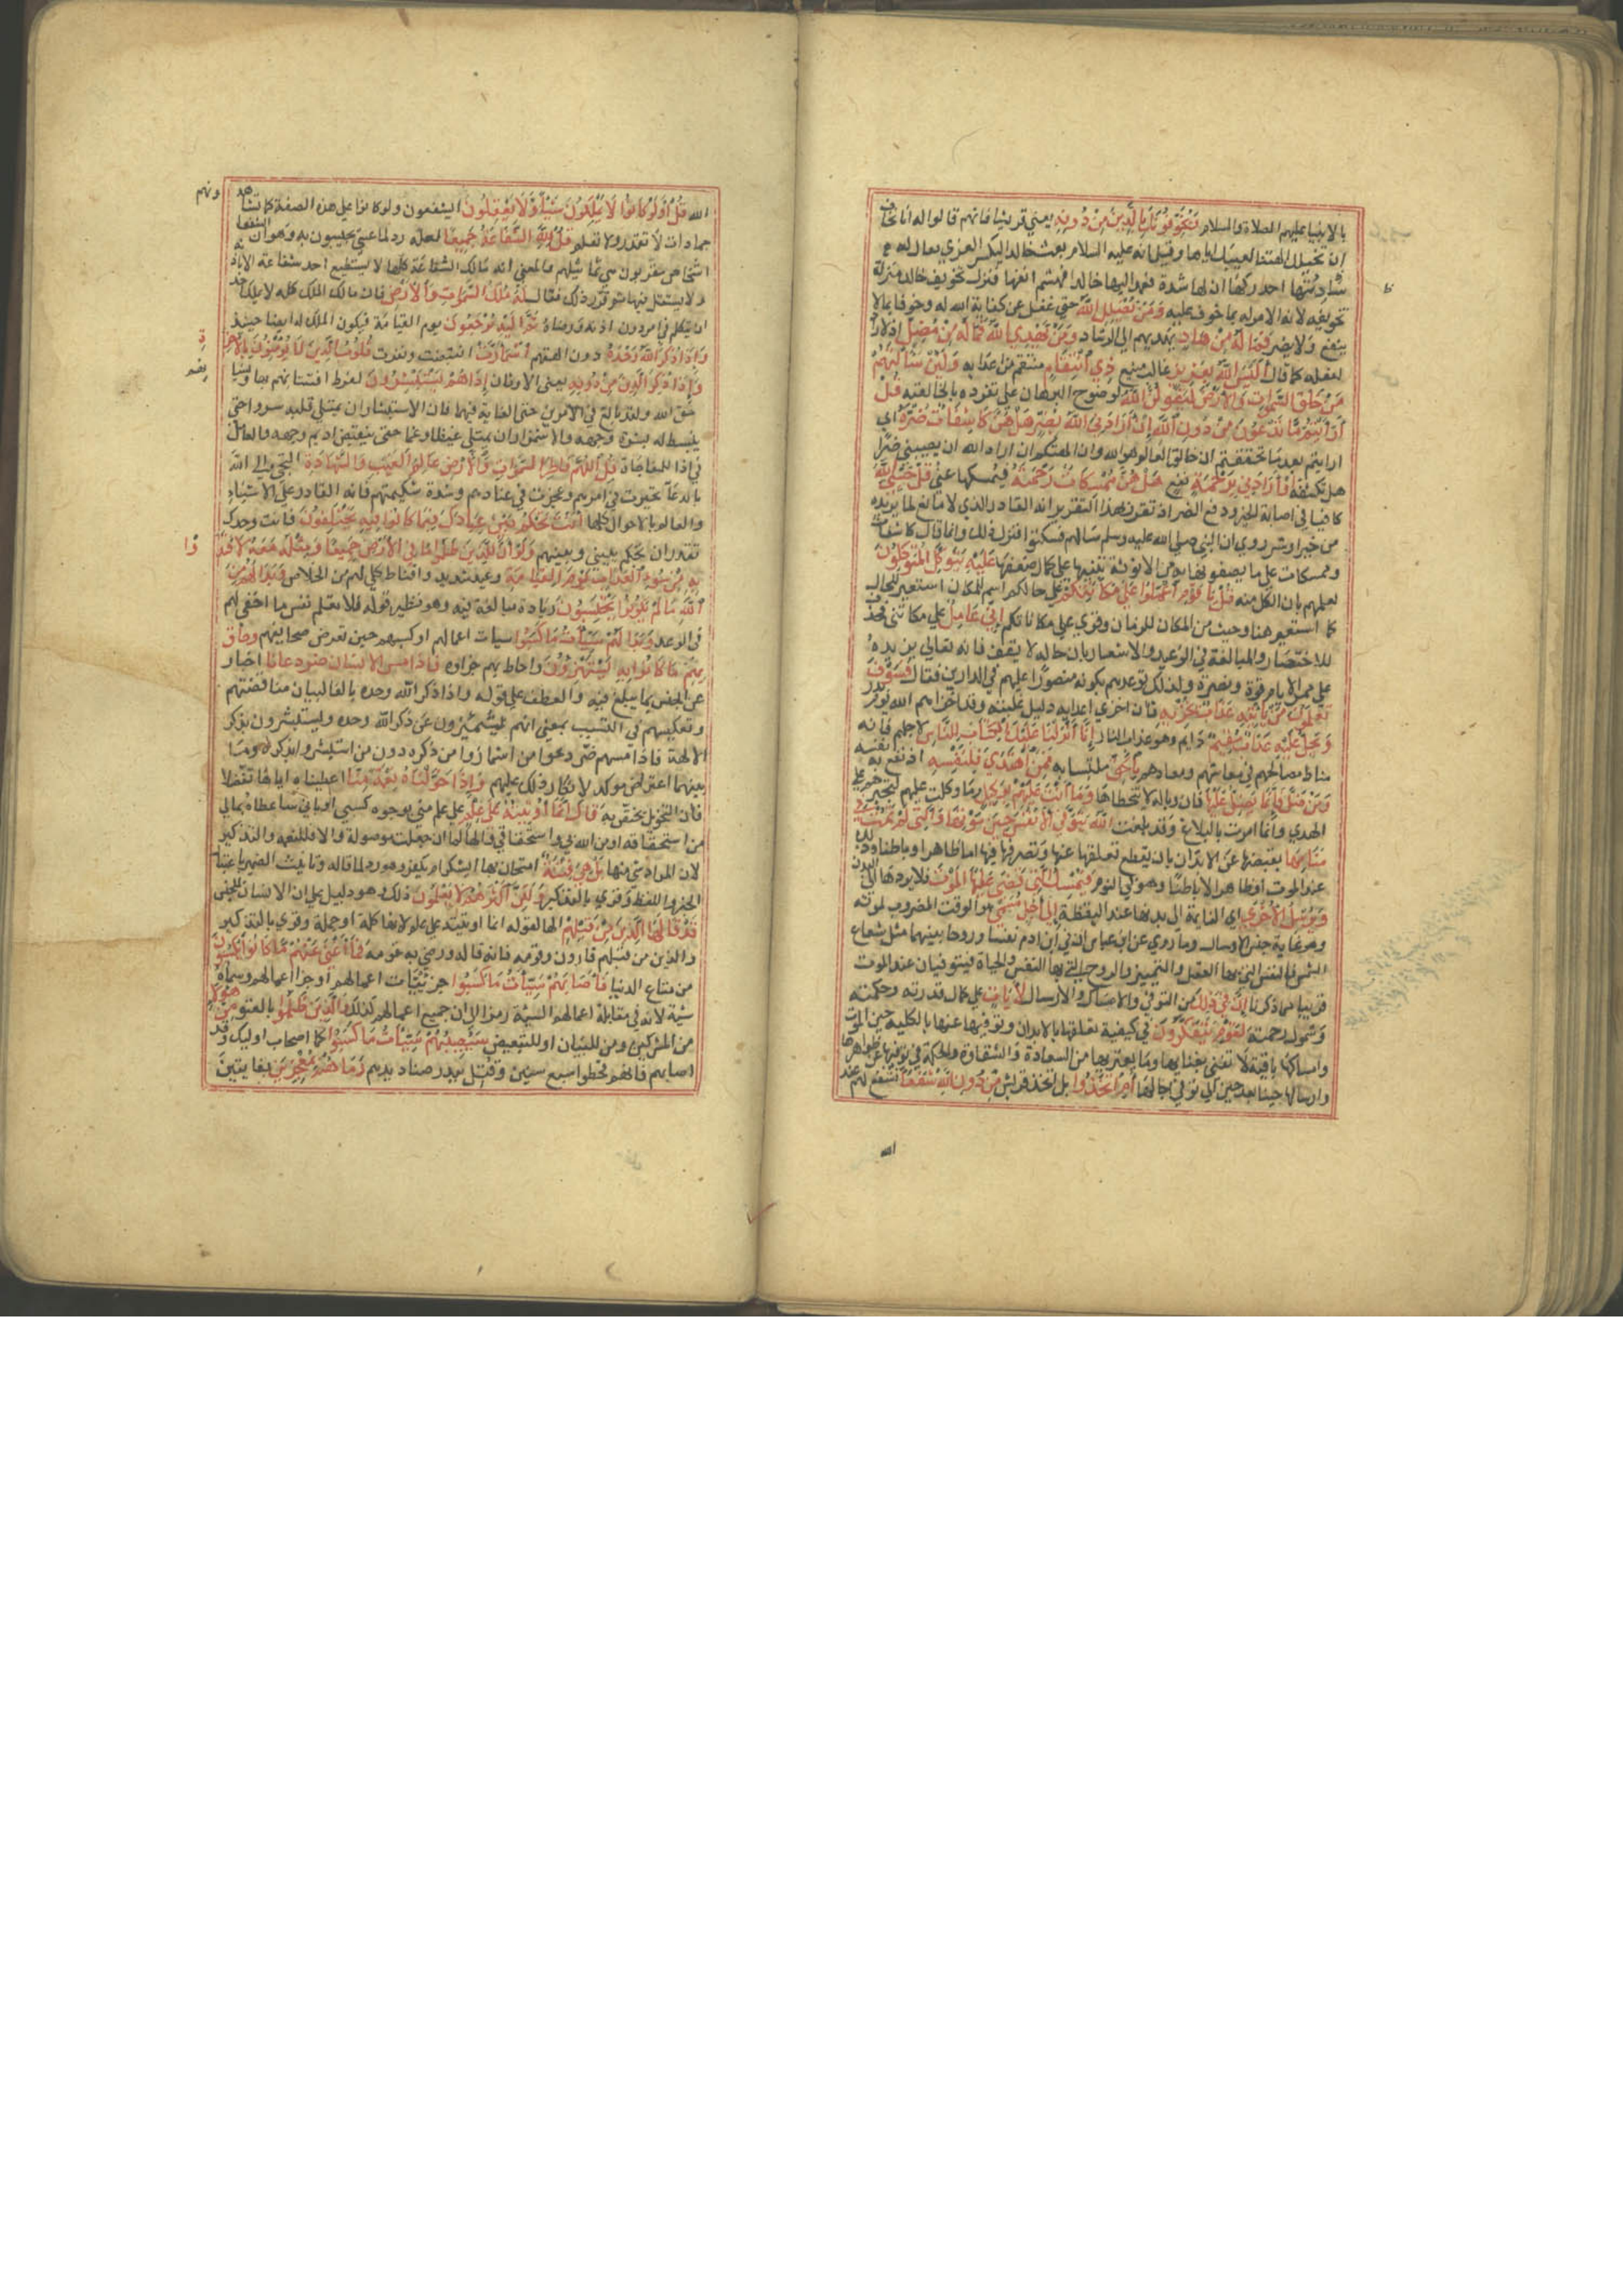 بالانبيا عليهم الصلاة والسلام وَيُخَوِّفُونَكَ بِالَّذِينَ مِنْ دُونِهِ يعني قريشا فانهم قالوا له انا نخاف
ان تخبلك الهتنا لعيبك اياها وقيل انه عليه السلام بعث خالدا ليكسر العزي فقال له
سادنها احذركها ان لها شدة فعمد اليها خالد فهشم انفها فنزل تخويف خالد منزلة
تخويفه لانه الامر له بما خوف عليه وَمَنْ يُضْلِلِ اللَّهُ حتى غفل عن كفاية الله له وخوفه بما لا
ينفع ولا يضر فَمَا لَهُ مِنْ هَادٍ يهديهم الى الرشاد وَمَنْ يَهْدِي اللَّهُ فَمَا لَهُ مِنْ مُضِلٍّ اذ لا راد
لفعله كما قال أَلَيْسَ اللَّهُ بِعَزِيزٍ غالب منيع ذِي انْتِقَامٍ منتقم من اعدايه وَلَئِنْ سَأَلْتَهُمْ
مَنْ خَلَقَ السَّمَوَاتِ وَالْأَرْضَ لَيَقُولُنَّ اللَّهُ لوضوح البرهان على تفرده بالخالقية قُلْ
أَرَأَيْتُمْ مَا تَدْعُونَ مِنْ دُونِ اللَّهِ إِنْ أَرَادَنِيَ اللَّهُ بِضُرٍّ هَلْ هُنَّ كَاشِفَاتُ ضُرِّهِ اي
ارايتم بعد ما تحققتم ان خالق العالم هو الله وان الهتكم ان اراد الله ان يصيبني ضرا
هل تكشفه أَوْ أَرَادَنِي بِرَحْمَةٍ بنفع هَلْ هُنَّ مُمْسِكَاتُ رَحْمَتِهِ فيمسكها عني قُلْ حَسْبِيَ اللَّهُ
كافيا في اصابة الخير ودفع الضر اذ تقرر بهذا التقرير انه القادر الذي لا مانع لما يريده
من خير او شر روي ان النبي صلى الله عليه وسلم سالهم فسكتوا فنزل ذلك وانما قال كاشفات
وممسكات على ما يصفونها به من الانوثة تنبيها على كمال ضعفها عَلَيْهِ يَتَوَكَّلُ الْمُتَوَكِّلُونَ
لعلمهم بان الكل منه قُلْ يَا قَوْمِ اعْمَلُوا عَلَى مَكَانَتِكُمْ على حالكم اسم للمكان استعير للحال
كما استعير هنا وحيث من المكان للزمان وقري على مكاناتكم إِنِّي عَامِلٌ على مكانتي فحذف
للاختصار والمبالغة في الوعيد والاشعار بان حاله لا يقف فانه تعالى يزيده
على ممر الايام قوة ونصرة ولذلك توعدهم بكونه منصورا عليهم في الدارين فقال فَسَوْفَ
تَعْلَمُونَ مَنْ يَأْتِيهِ عَذَابٌ يُخْزِيهِ فان اخزي اعدايه دليل غلبته وقد اخزاهم الله يوم بدر
وَيَحِلُّ عَلَيْهِ عَذَابٌ مُقِيمٌ دايم وهو عذاب النار إِنَّا أَنْزَلْنَا عَلَيْكَ الْكِتَابَ لِلنَّاسِ لاجلهم فانه
مناط مصالحهم في معاشهم ومعادهم بِالْحَقِّ ملتبسا به فَمَنِ اهْتَدَى فَلِنَفْسِهِ اذ نفع به نفسه
وَمَنْ ضَلَّ فَإِنَّمَا يَضِلُّ عَلَيْهَا فان وباله لا يتخطاها وَمَا أَنْتَ عَلَيْهِمْ بِوَكِيلٍ وما وكلت عليهم لتجبرهم على
الهدي وانما امرت بالبلاغ وقد بلغت اللَّهُ يَتَوَفَّى الْأَنْفُسَ حِينَ مَوْتِهَا وَالَّتِي لَمْ تَمُتْ فِي
مَنَامِهَا يقبضها عن الابدان بان يقطع تعلقها عنها وتصرفها فيها اما ظاهرا وباطنا وذلك
عند الموت او ظاهرا لا باطنا وهو في النوم فَيُمْسِكُ الَّتِي قَضَى عَلَيْهَا الْمَوْتَ فلا يردها الى البدن
وَيُرْسِلُ الْأُخْرَى اي النايمة الى بدنها عند اليقظة إِلَى أَجَلٍ مُسَمًّى هو الوقت المضروب لموته
وهو غاية جنس الارسال وما روي عن ابن عباس ان في ابن ادم نفسا وروحا بينهما مثل شعاع
الشمس فالنفس التي بها العقل والتمييز والروح التي بها النفس والحياة فيتوفيان عند الموت
قريب مما ذكرنا إِنَّ فِي ذَلِكَ من التوفي والامساك والارسال لَآيَاتٍ على كمال قدرته وحكمته
وشمول رحمته لِقَوْمٍ يَتَفَكَّرُونَ في كيفية تعلقها بالابدان وتوفيها عنها بالكلية حين الموت
وامساكها باقية لا تفنى بفنايها وما يعتريها من السعادة والشقاوة والحكمة في توفيها عن ظواهرها
وارسالها حينا بعد حين الى توفي اجالها أَمِ اتَّخَذُوا بل اتخذ قريش مِنْ دُونِ اللَّهِ شُفَعَاءَ تشفع لهم عند
الله
الله قُلْ أَوَلَوْ كَانُوا لَا يَمْلِكُونَ شَيْئًا وَلَا يَعْقِلُونَ ايشفعون ولو كانوا على هذه الصفة كما تشاهدونهم
جمادات لا تقدر ولا تعلم قُلْ لِلَّهِ الشَّفَاعَةُ جَمِيعًا لعله رد لما عسى يجيبون به وهو ان الشفعا
اشخاص مقربون هي تماثيلهم والمعنى انه مالك الشفاعة كلها لا يستطيع احد شفاعة الا باذنه
ولا يستقل بها ثم قرر ذلك فقال لَهُ مُلْكُ السَّمَوَاتِ وَالْأَرْضِ فانه مالك الملك كله لا يملك احد
ان يتكلم في امره دون اذنه ورضاه ثُمَّ إِلَيْهِ تُرْجَعُونَ يوم القيامة فيكون الملك له ايضا حينيذ
وَإِذَا ذُكِرَ اللَّهُ وَحْدَهُ دون الهتهم اشْمَأَزَّتْ انقبضت ونفرت قُلُوبُ الَّذِينَ لَا يُؤْمِنُونَ بِالْآخِرَةِ
وَإِذَا ذُكِرَ الَّذِينَ مِنْ دُونِهِ يعني الاوثان إِذَا هُمْ يَسْتَبْشِرُونَ لفرط افتتانهم بها ونسيانهم
حق الله ولقد بالغ في الامرين حتى الغاية فيهما فان الاستبشار ان يمتلي قلبه سرورا حتى
ينبسط له بشرة وجهه والاشمئزاز ان يمتلي غيظا وغما حتى ينقبض اديم وجهه والعامل
في اذا المفاجاة قُلِ اللَّهُمَّ فَاطِرَ السَّمَوَاتِ وَالْأَرْضِ عَالِمَ الْغَيْبِ وَالشَّهَادَةِ التجي الى الله
بالدعا لما تحيرت في امرهم وعجزت في عنادهم وشدة شكيمتهم فانه القادر على الاشياء
والعالم بالاحوال كلها أَنْتَ تَحْكُمُ بَيْنَ عِبَادِكَ فِيمَا كَانُوا فِيهِ يَخْتَلِفُونَ فانت وحدك
تقدر ان تحكم بيني وبينهم وَلَوْ أَنَّ لِلَّذِينَ ظَلَمُوا مَا فِي الْأَرْضِ جَمِيعًا وَمِثْلَهُ مَعَهُ لَافْتَدَوْا
بِهِ مِنْ سُوءِ الْعَذَابِ يَوْمَ الْقِيَامَةِ وعيد شديد واقناط كلي لهم من الخلاص وَبَدَا لَهُمْ مِنَ
اللَّهِ مَا لَمْ يَكُونُوا يَحْتَسِبُونَ زيادة مبالغة فيه وهو نظير قوله فلا تعلم نفس ما اخفي لهم
في الوعد وَبَدَا لَهُمْ سَيِّئَاتُ مَا كَسَبُوا سيات اعمالهم او كسبهم حين تعرض صحايفهم وَحَاقَ
بِهِمْ مَا كَانُوا بِهِ يَسْتَهْزِئُونَ واحاط بهم جزاوه فَإِذَا مَسَّ الْإِنْسَانَ ضُرٌّ دَعَانَا اخبار
عن الجنس بما يغلب فيه والعطف على قوله واذا ذكر الله وحده بالفا لبيان مناقضتهم
وتعكيسهم في التسبب بمعنى انهم يشمئزون عن ذكر الله وحده ويستبشرون بذكر
الالهة فاذا مسهم ضر دعوا من اشمازوا من ذكره دون من استبشروا بذكره وما
بينهما اعتراض موكد لانكار ذلك عليهم وَإِذَا خَوَّلْنَاهُ نِعْمَةً مِنَّا اعطيناه اياها تفضلا
فان التخويل يختص به قَالَ إِنَّمَا أُوتِيتُهُ عَلَى عِلْمٍ على علم مني بوجوه كسبي او باني ساعطاه لمالي
من استحقاقه او من الله بي واستحقاقي والها لما ان جعلت موصولة والا فللنعمة والتذكير
لان المراد شي منها بَلْ هِيَ فِتْنَةٌ امتحان له ايشكر ام يكفر وهو رد لما قاله وتانيث الضمير باعتبار
الخبر او اللفظ وقري بالتذكير وَلَكِنَّ أَكْثَرَهُمْ لَا يَعْلَمُونَ ذلك وهو دليل على ان الانسان للجنس
قَدْ قَالَهَا الَّذِينَ مِنْ قَبْلِهِمْ الها لقوله انما اوتيته على علم لانها كلمة او جملة وقري بالتذكير
والذين من قبلهم قارون وقومه فانه قاله ورضي به قومه فَمَا أَغْنَى عَنْهُمْ مَا كَانُوا يَكْسِبُونَ
من متاع الدنيا فَأَصَابَهُمْ سَيِّئَاتُ مَا كَسَبُوا جزا سيئات اعمالهم او جزا اعمالهم وسماه
سيئة لانه في مقابلة اعمالهم السيئة رمزا الى ان جميع اعمالهم كذلك وَالَّذِينَ ظَلَمُوا بالعتو مِنْ هَؤُلَاءِ
من المشركين ومن للبيان او للتبعيض سَيُصِيبُهُمْ سَيِّئَاتُ مَا كَسَبُوا كما اصحاب اوليك وقد
اصابهم فانهم قحطوا سبع سنين وقتل ببدر صناديدهم وَمَا هُمْ بِمُعْجِزِينَ بفايتين